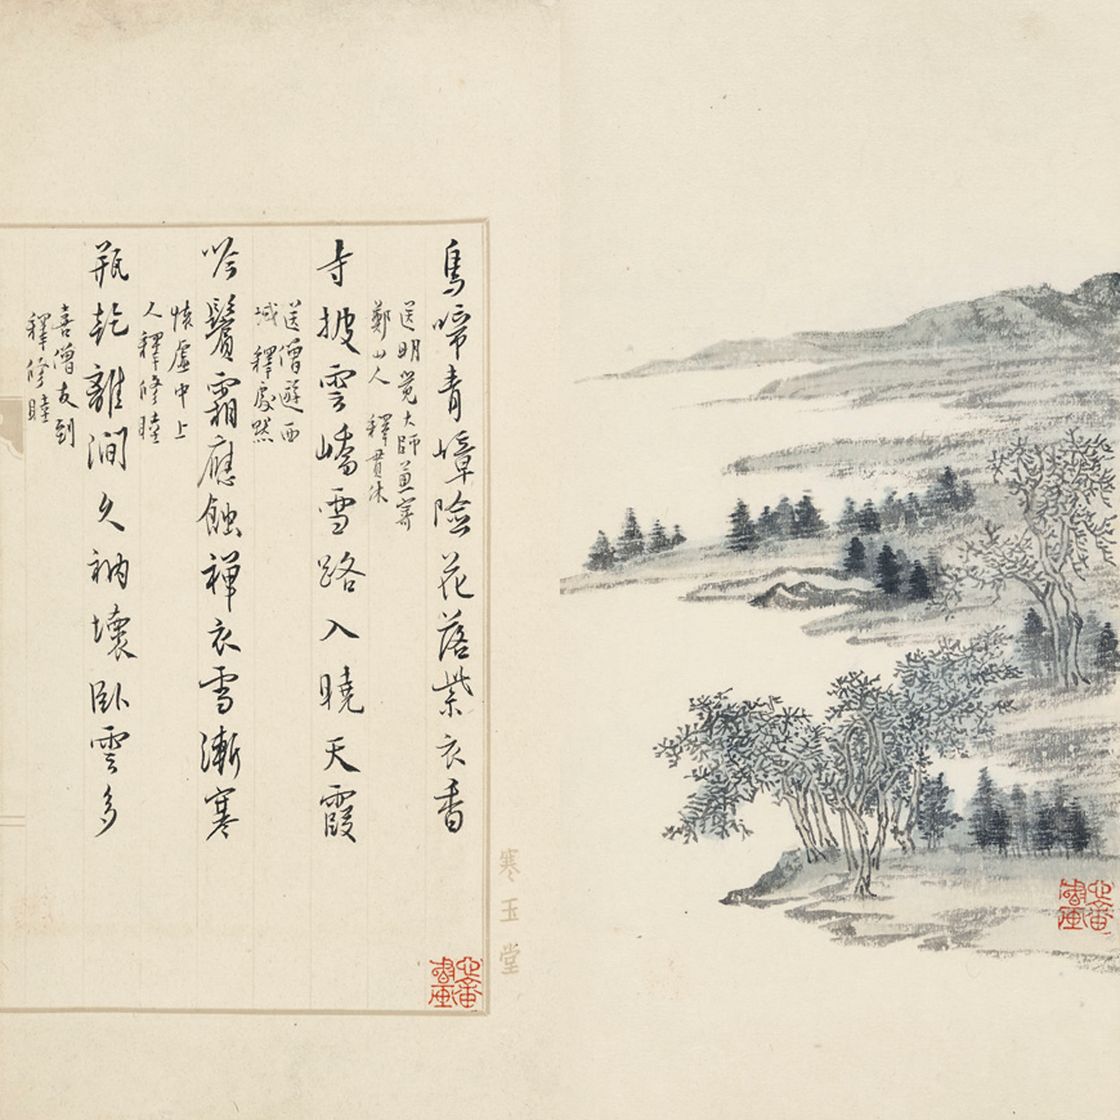 鳥啼青嶂險花落紫衣香
送明覺大師兼寄
鄭山人 釋貫休
寺披雲嶠雪路入曉天霞
送僧遊西
域 釋處默
吟鬢霜應蝕禪衣雪漸寒
懷虛中上
人釋修睦
瓶乾離澗久衲壞臥雲多
喜僧友到
釋修睦
寒玉堂